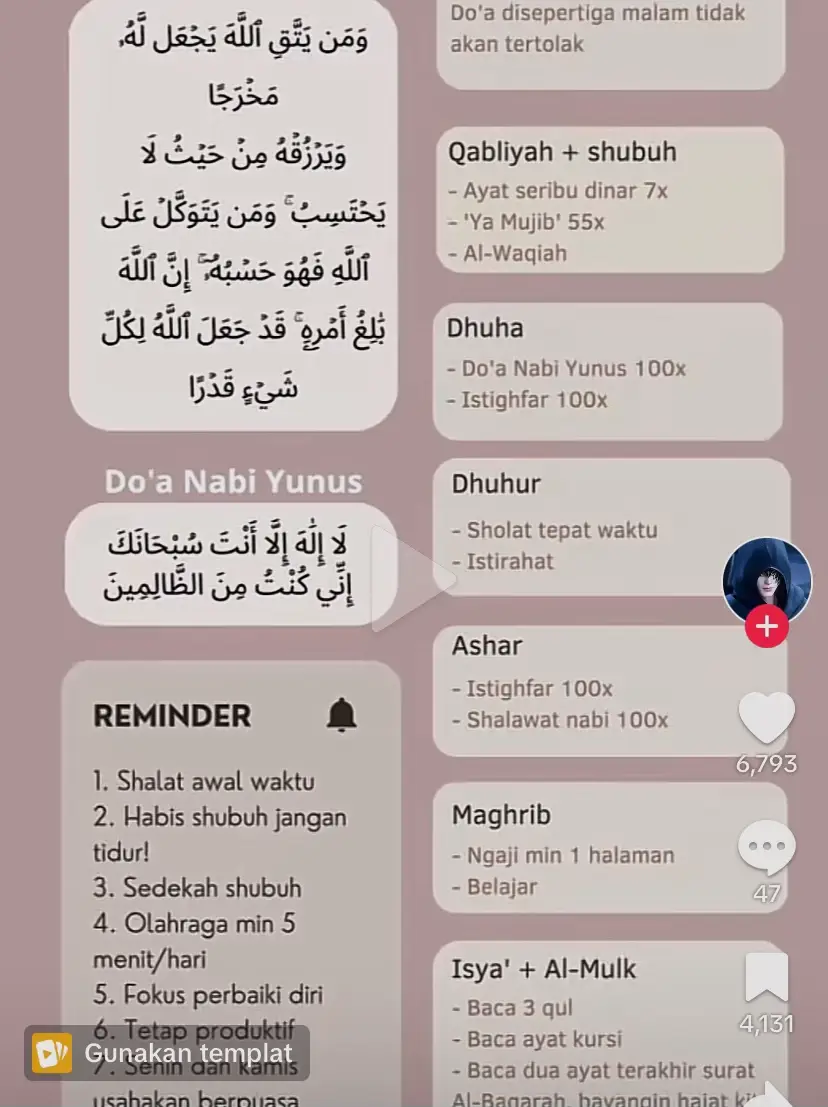 وَمَن يَتَّقِ ٱللَّهَ يَجۡعَل لَّهُۥ
مَخۡرَجًا
وَيَرۡزُقۡهُ مِنۡ حَيۡثُ لَا
يَحۡتَسِبُۚ وَمَن يَتَوَكَّلۡ عَلَى
ٱللَّهِ فَهُوَ حَسۡبُهُۥٓۚ إِنَّ ٱللَّهَ
بَٰلِغُ أَمۡرِهِۦۚ قَدۡ جَعَلَ ٱللَّهُ لِكُلِّ
شَيۡءٖ قَدۡرًا
Do'a Nabi Yunus
لَا إِلَٰهَ إِلَّا أَنْتَ سُبْحَانَكَ
إِنِّي كُنْتُ مِنَ الظَّالِمِينَ
REMINDER
1. Shalat awal waktu
2. Habis shubuh jangan
tidur!
3. Sedekah shubuh
4. Olahraga min 5
menit/hari
5. Fokus perbaiki diri
6. Tetap produktif
7. Senin dan kamis
usahakan berpuasa
Gunakan templat
Do'a disepertiga malam tidak
akan tertolak
Qabliyah + shubuh
- Ayat seribu dinar 7x
- 'Ya Mujib' 55x
- Al-Waqiah
Dhuha
- Do'a Nabi Yunus 100x
- Istighfar 100x
Dhuhur
- Sholat tepat waktu
- Istirahat
Ashar
- Istighfar 100x
- Shalawat nabi 100x
Maghrib
- Ngaji min 1 halaman
- Belajar
Isya' + Al-Mulk
- Baca 3 qul
- Baca ayat kursi
- Baca dua ayat terakhir surat
Al-Baqarah, bayangin hajat
6,793
47
4,131